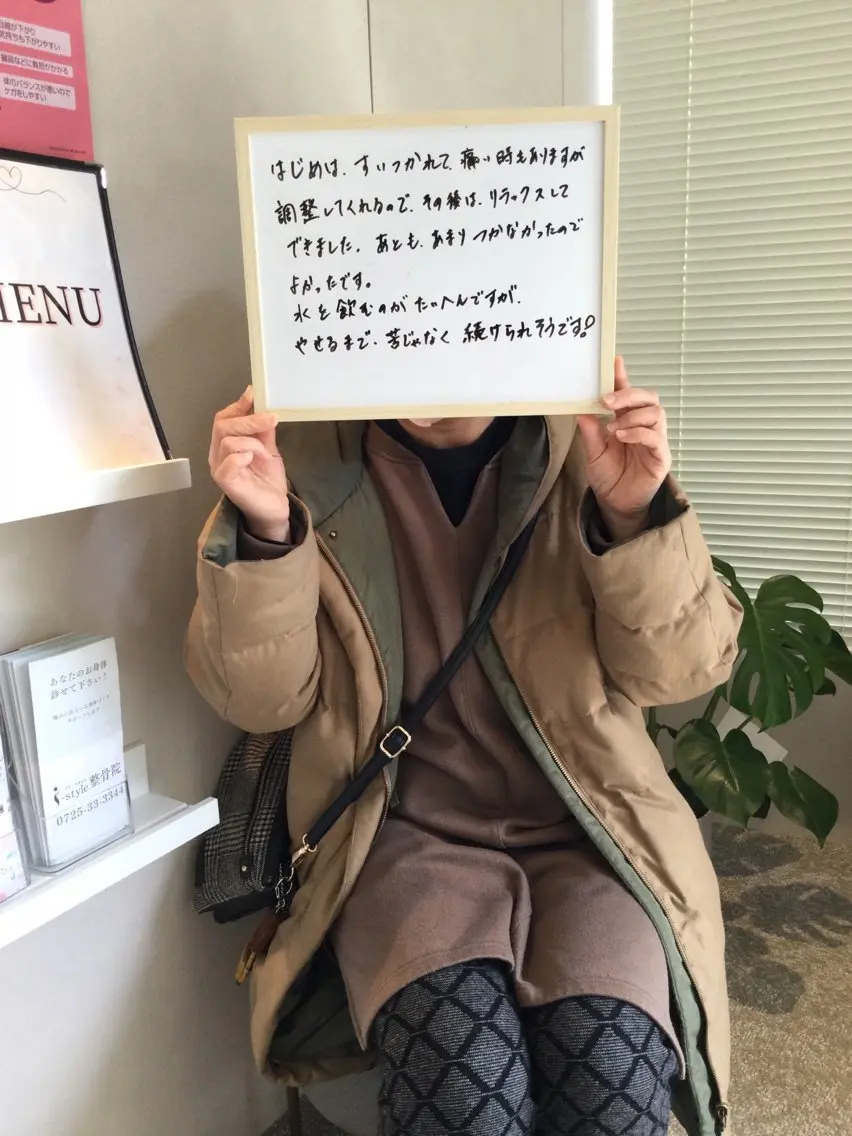 白線が下がり
気持ちも下がりやすい
臓器などに負担がかかる
体のバランスが悪いので
ケガをしやすい
MENU
はじめは、すいつかれて、痛い時もありますが
調整してくれるので、その後は、リラックスして
できました。あとも、あまりつかなかったので
よかったです。
水を飲むのがたいへんですが、
やせるまで、苦じゃなく続けられそうです!
あなたのお身体
診せて下さい!
i-style 整骨院
0725-33-3344